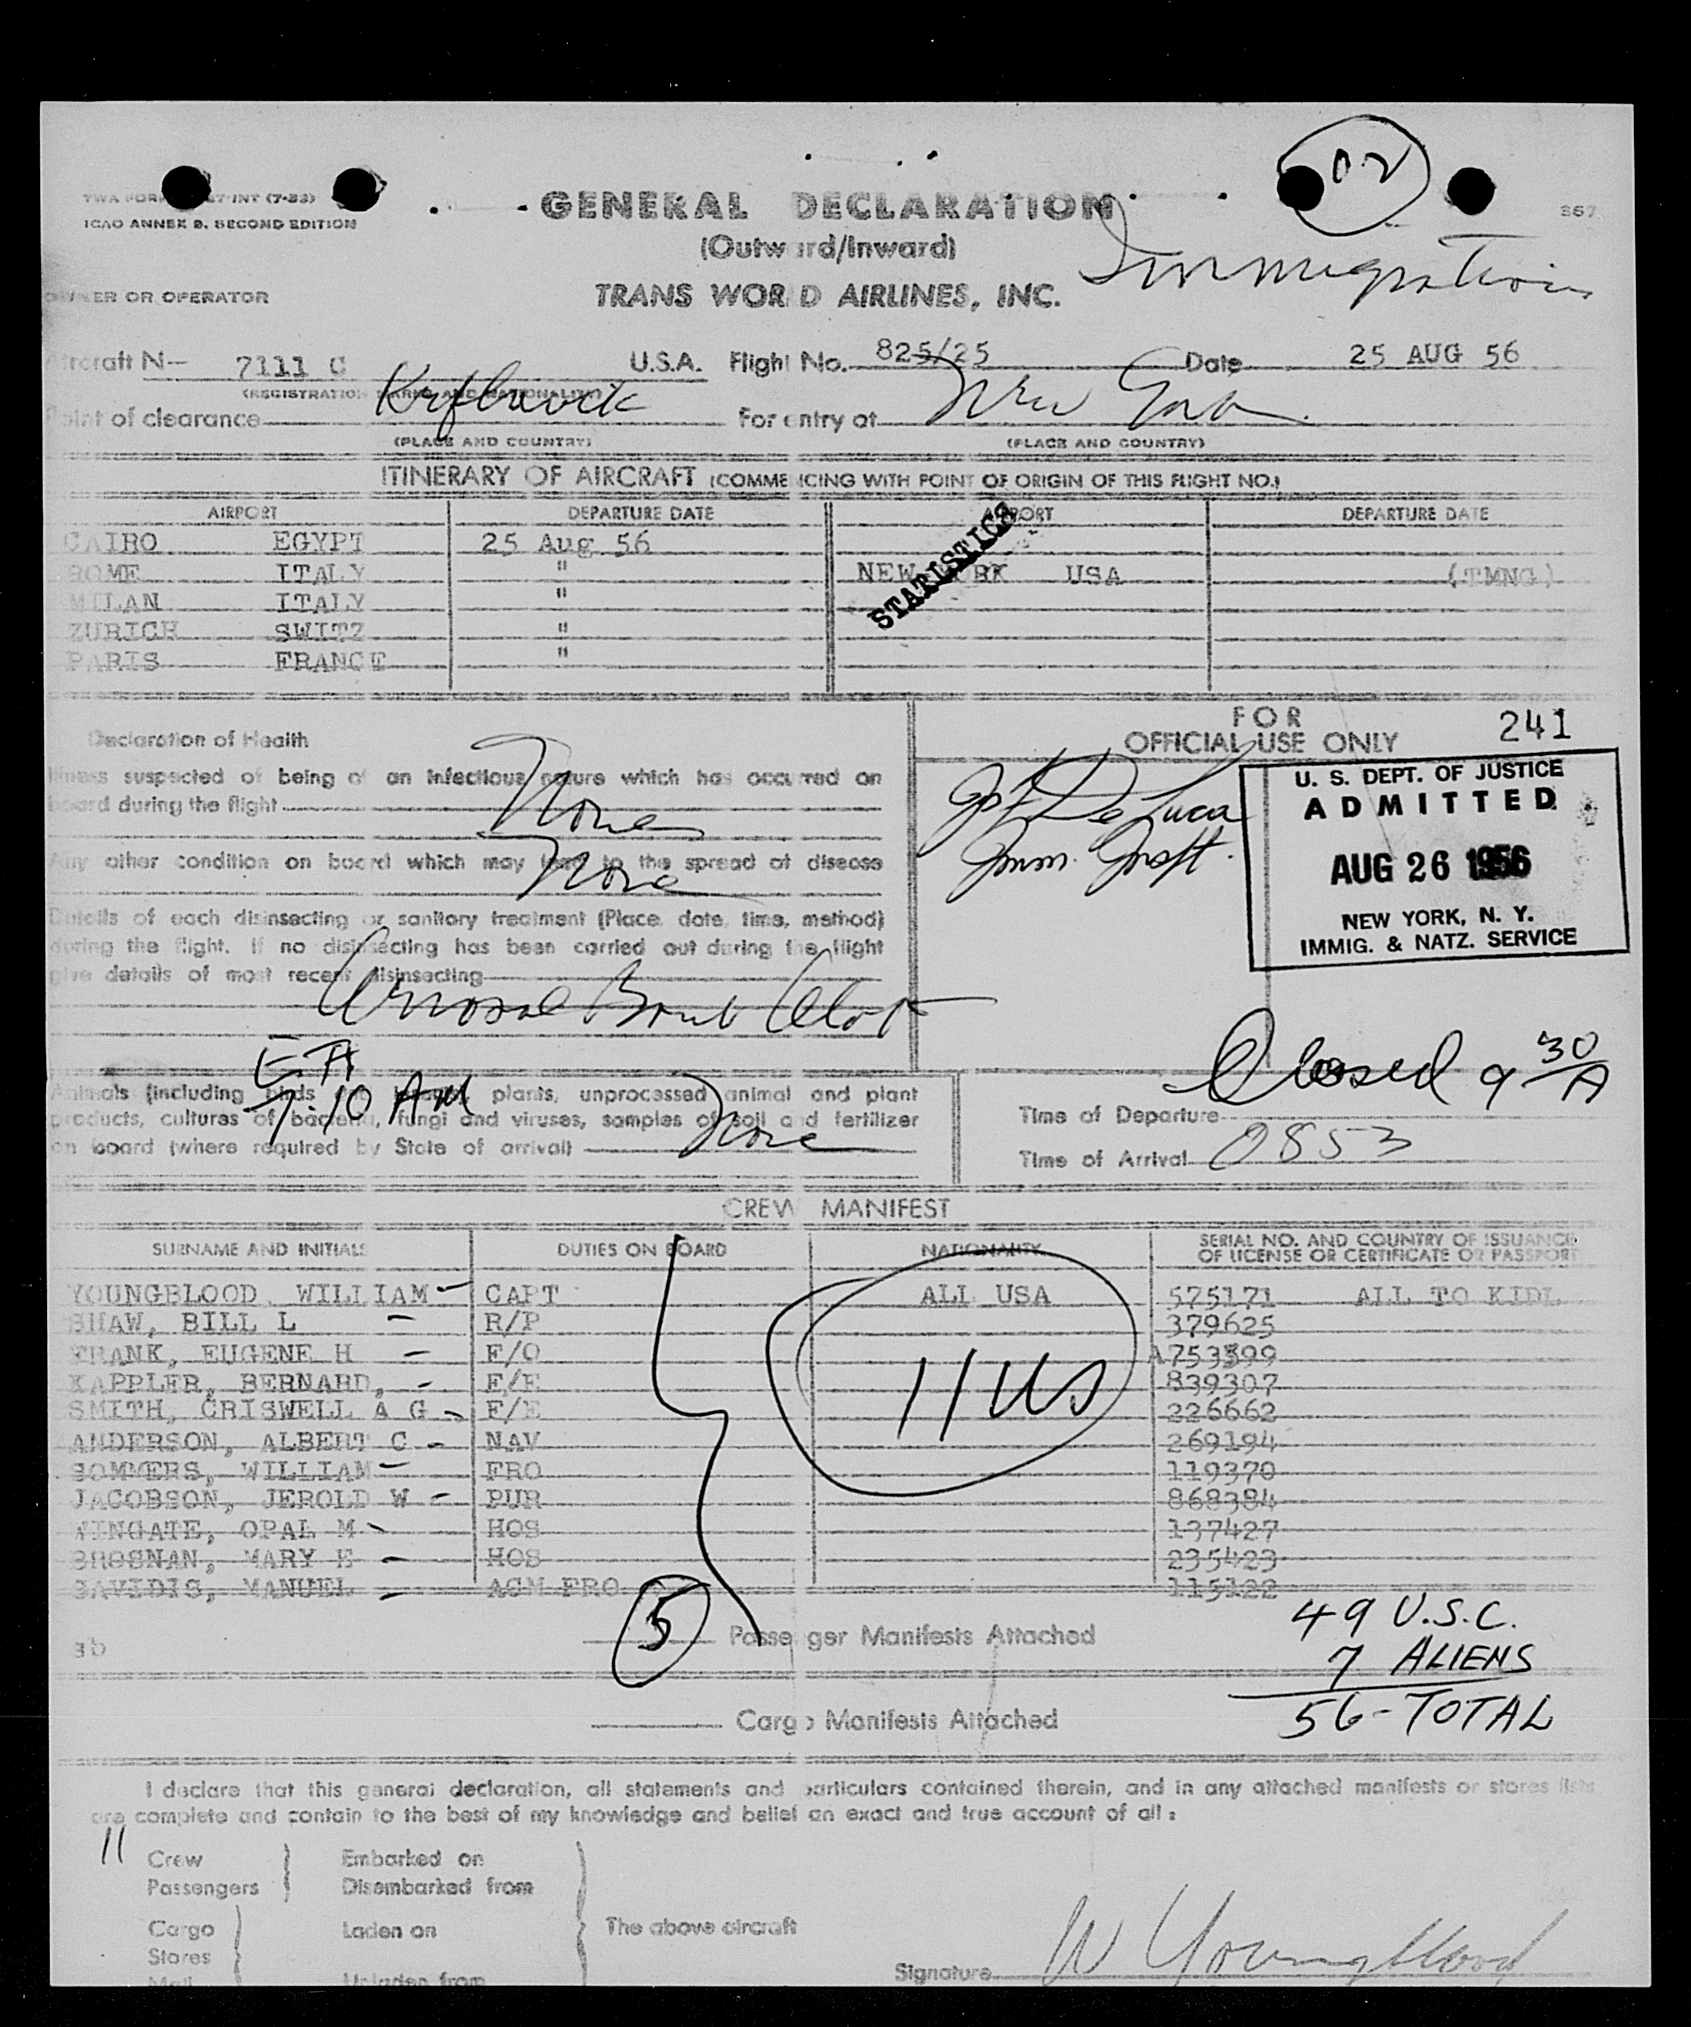 02
TWA FORM INT (7-53)
ICAO ANNEX 9, SECOND EDITION
GENERAL DECLARATION
(Outward/Inward)
367
Immigration
OWNER OR OPERATOR
TRANS WORLD AIRLINES, INC.
Aircraft N- 7111 C U.S.A. Flight No. 825/25 Date 25 AUG 56
(REGISTRATION MARKS AND NATIONALITY)
Point of clearance Keflavik For entry at New York
(PLACE AND COUNTRY) (PLACE AND COUNTRY)
ITINERARY OF AIRCRAFT (COMMENCING WITH POINT OF ORIGIN OF THIS FLIGHT NO.)
AIRPORT DEPARTURE DATE AIRPORT DEPARTURE DATE
CAIRO EGYPT 25 Aug 56
ROME ITALY " NEW YORK USA (TMNG)
MILAN ITALY "
ZURICH SWITZ "
PARIS FRANCE "
STATISTICS
Declaration of Health
Illness suspected of being of an infectious nature which has occurred on
board during the flight None
Any other condition on board which may lead to the spread of disease
None
Details of each disinsecting or sanitary treatment (Place, date, time, method)
during the flight. If no disinsecting has been carried out during the flight
give details of most recent disinsecting
Aerosol Bomb
FOR
OFFICIAL USE ONLY
241
De Luca
Imm. Inspt.
U. S. DEPT. OF JUSTICE
ADMITTED
AUG 26 1956
NEW YORK, N. Y.
IMMIG. & NATZ. SERVICE
7:10 AM
Animals (including birds and insects), plants, unprocessed animal and plant
products, cultures of bacteria, fungi and viruses, samples of soil and fertilizer
on board (where required by State of arrival) None
Closed 9 30/A
Time of Departure
Time of Arrival 0853
CREW MANIFEST
SURNAME AND INITIALS DUTIES ON BOARD NATIONALITY SERIAL NO. AND COUNTRY OF ISSUANCE
OF LICENSE OR CERTIFICATE OR PASSPORT
YOUNGBLOOD, WILLIAM - CAPT ALL USA 575171 ALL TO KIDL
SHAW, BILL L - R/P 379625
FRANK, EUGENE H - F/O A753599
KAPPLER, BERNARD, - F/E 839307
SMITH, CRISWELL A G - F/E 226662
ANDERSON, ALBERT C - NAV 269194
SOMMERS, WILLIAM - FRO 119370
JACOBSON, JEROLD W - PUR 868384
WINGATE, OPAL M - HOS 137427
BROSNAN, MARY E - HOS 235423
SAVIDIS, MANUEL - ACM FRO 115122
11 US
ab
5 Passenger Manifests Attached
Cargo Manifests Attached
49 U.S.C.
7 ALIENS
56-TOTAL
I declare that this general declaration, all statements and particulars contained therein, and in any attached manifests or stores lists
are complete and contain to the best of my knowledge and belief an exact and true account of all:
11 Crew Embarked on
Passengers Disembarked from
Cargo Laden on The above aircraft
Stores
Mail Unladen from
Signature W Youngblood